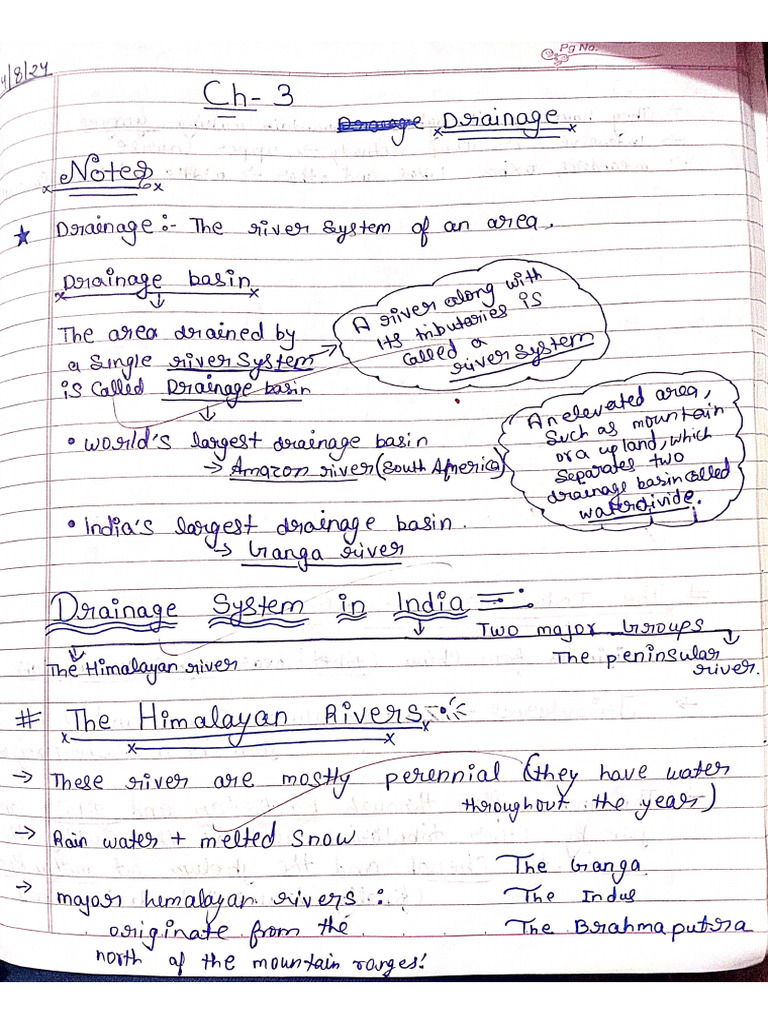 Pg No.
/8/24
Ch-3
Drainage
Notes
Drainage:- The river system of an area.
Drainage basin
The area drained by
a single river system
is called Drainage basin
A river along with
its tributaries is
called a
river system
• World's largest drainage basin
→ Amazon river (South Africa)
An elevated area,
such as mountain
or a upland, which
separates two
drainage basin called
water divide.
• India's largest drainage basin.
→ Ganga river
Drainage System in India
Two major Groups
The Himalayan river
The peninsular
river.
# The Himalayan Rivers
→ These river are mostly perennial (they have water
throughout the year)
→ Rain water + melted snow
→ major hemalayan rivers :
The Ganga
The Indus
The Brahmaputra
originate from the
north of the mountain ranges.